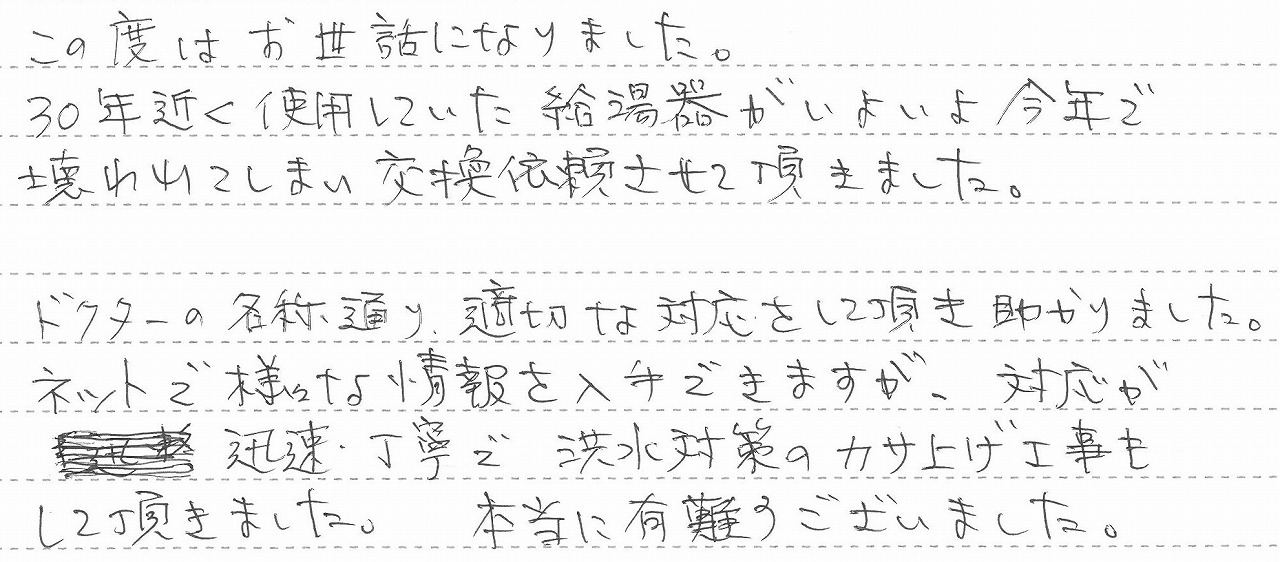 この度はお世話になりました。
30年近く使用していた給湯器がいよいよ今年で
壊われてしまい交換依頼させて頂きました。
ドクターの名称通り、適切な対応をして頂き助かりました。
ネットで様々な情報を入手できますが、対応が
迅速・丁寧で 洪水対策のカサ上げ工事も
して頂きました。 本当に有難うございました。